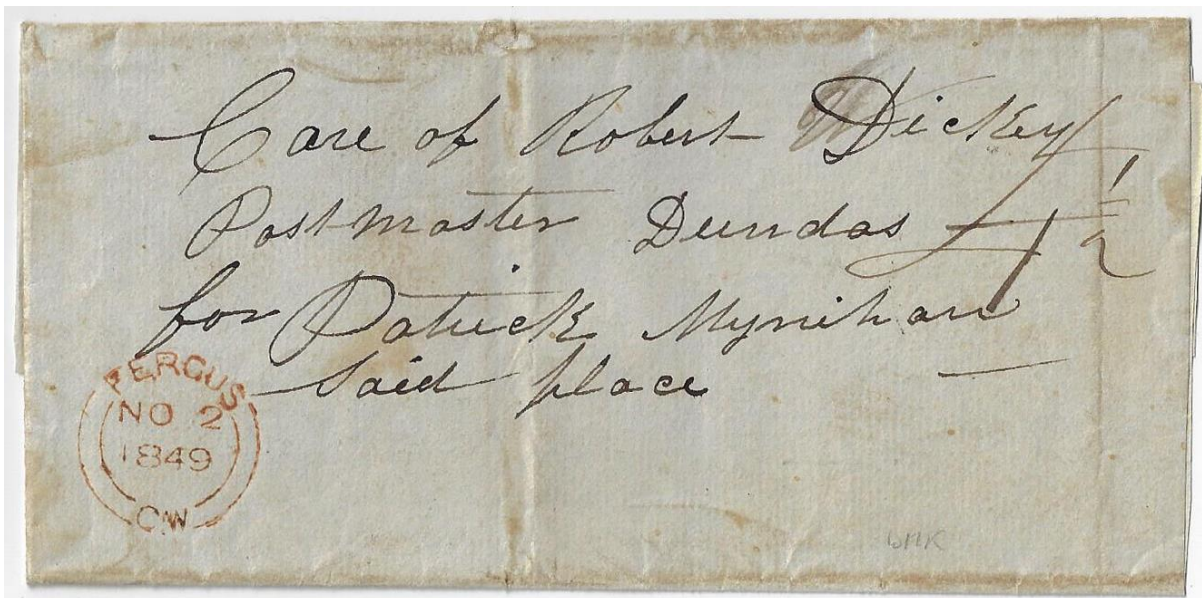 Care of Robert Dickey
Postmaster Dundas
for Patrick Mynihan
Said place
FERGUS
NO 2
1849
CW